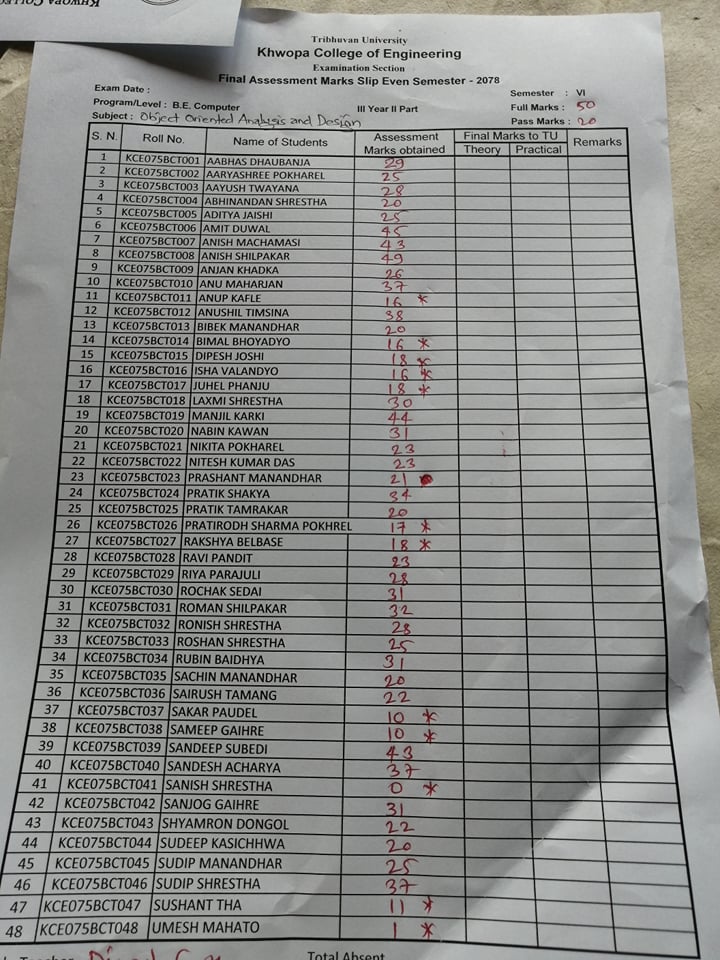 KHWOPA COLLEG
Tribhuvan University
Khwopa College of Engineering
Examination Section
Final Assessment Marks Slip Even Semester - 2078
Exam Date :
Semester : VI
Program/Level : B.E. Computer III Year II Part Full Marks : 50
Subject : Object Oriented Analysis and Design Pass Marks : 20
S. N. Roll No. Name of Students Assessment Marks obtained Final Marks to TU Remarks
Theory Practical
1 KCE075BCT001 AABHAS DHAUBANJA 29
2 KCE075BCT002 AARYASHREE POKHAREL 25
3 KCE075BCT003 AAYUSH TWAYANA 28
4 KCE075BCT004 ABHINANDAN SHRESTHA 20
5 KCE075BCT005 ADITYA JAISHI 25
6 KCE075BCT006 AMIT DUWAL 45
7 KCE075BCT007 ANISH MACHAMASI 43
8 KCE075BCT008 ANISH SHILPAKAR 49
9 KCE075BCT009 ANJAN KHADKA 26
10 KCE075BCT010 ANU MAHARJAN 37
11 KCE075BCT011 ANUP KAFLE 16 *
12 KCE075BCT012 ANUSHIL TIMSINA 38
13 KCE075BCT013 BIBEK MANANDHAR 20
14 KCE075BCT014 BIMAL BHOYADYO 16 *
15 KCE075BCT015 DIPESH JOSHI 18 *
16 KCE075BCT016 ISHA VALANDYO 16 *
17 KCE075BCT017 JUHEL PHANJU 18 *
18 KCE075BCT018 LAXMI SHRESTHA 30
19 KCE075BCT019 MANJIL KARKI 44
20 KCE075BCT020 NABIN KAWAN 31
21 KCE075BCT021 NIKITA POKHAREL 23
22 KCE075BCT022 NITESH KUMAR DAS 23
23 KCE075BCT023 PRASHANT MANANDHAR 21
24 KCE075BCT024 PRATIK SHAKYA 34
25 KCE075BCT025 PRATIK TAMRAKAR 20
26 KCE075BCT026 PRATIRODH SHARMA POKHREL 17 *
27 KCE075BCT027 RAKSHYA BELBASE 18 *
28 KCE075BCT028 RAVI PANDIT 23
29 KCE075BCT029 RIYA PARAJULI 28
30 KCE075BCT030 ROCHAK SEDAI 31
31 KCE075BCT031 ROMAN SHILPAKAR 32
32 KCE075BCT032 RONISH SHRESTHA 28
33 KCE075BCT033 ROSHAN SHRESTHA 25
34 KCE075BCT034 RUBIN BAIDHYA 31
35 KCE075BCT035 SACHIN MANANDHAR 20
36 KCE075BCT036 SAIRUSH TAMANG 22
37 KCE075BCT037 SAKAR PAUDEL 10 *
38 KCE075BCT038 SAMEEP GAIHRE 10 *
39 KCE075BCT039 SANDEEP SUBEDI 43
40 KCE075BCT040 SANDESH ACHARYA 37
41 KCE075BCT041 SANISH SHRESTHA 0 *
42 KCE075BCT042 SANJOG GAIHRE 31
43 KCE075BCT043 SHYAMRON DONGOL 22
44 KCE075BCT044 SUDEEP KASICHHWA 20
45 KCE075BCT045 SUDIP MANANDHAR 25
46 KCE075BCT046 SUDIP SHRESTHA 37
47 KCE075BCT047 SUSHANT THA 11 *
48 KCE075BCT048 UMESH MAHATO 1 *
Total Absent